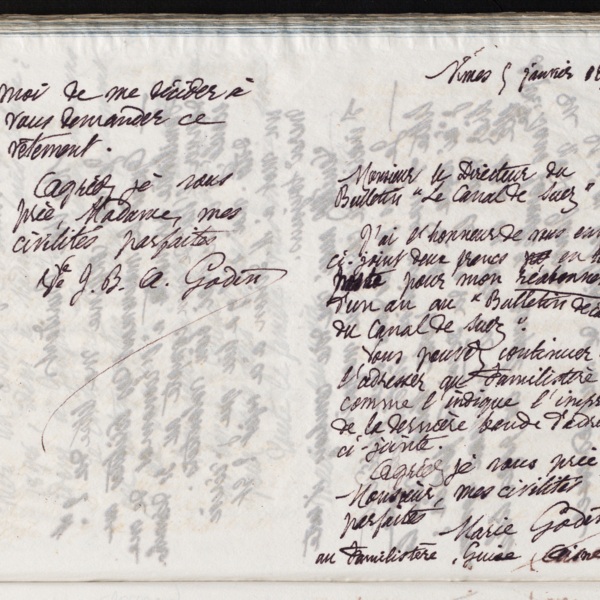 moi de me décider à
vous demander ce
vêtement.
Agréez, je vous
prie, Madame, mes
civilités parfaites
Vve J. B. A. Godin
Nîmes 5 janvier 18
Monsieur le Directeur du
Bulletin "Le Canal de Suez"
J'ai l'honneur de vous en
ci-joint deux francs en
pour mon réabonne
d'un an au "Bulletin
du Canal de Suez".
Vous pouvez continuer
l'adresser au Familistère
comme l'indique l'impr
de la dernière bande d'adre
ci-jointe.
Agréez, je vous prie
Monsieur, mes civilités
parfaites
Marie Godin
au Familistère, Guise (Aisne